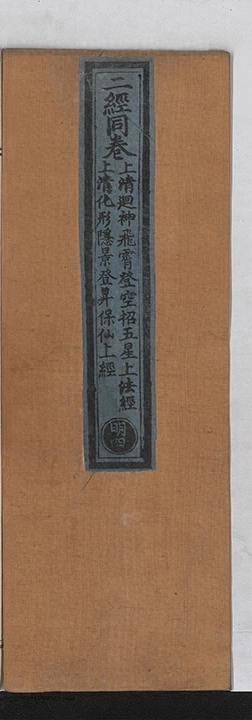 二經同卷
上清迴神飛霄登空招五星上法經
上清化形隱景登昇保仙上經
明四